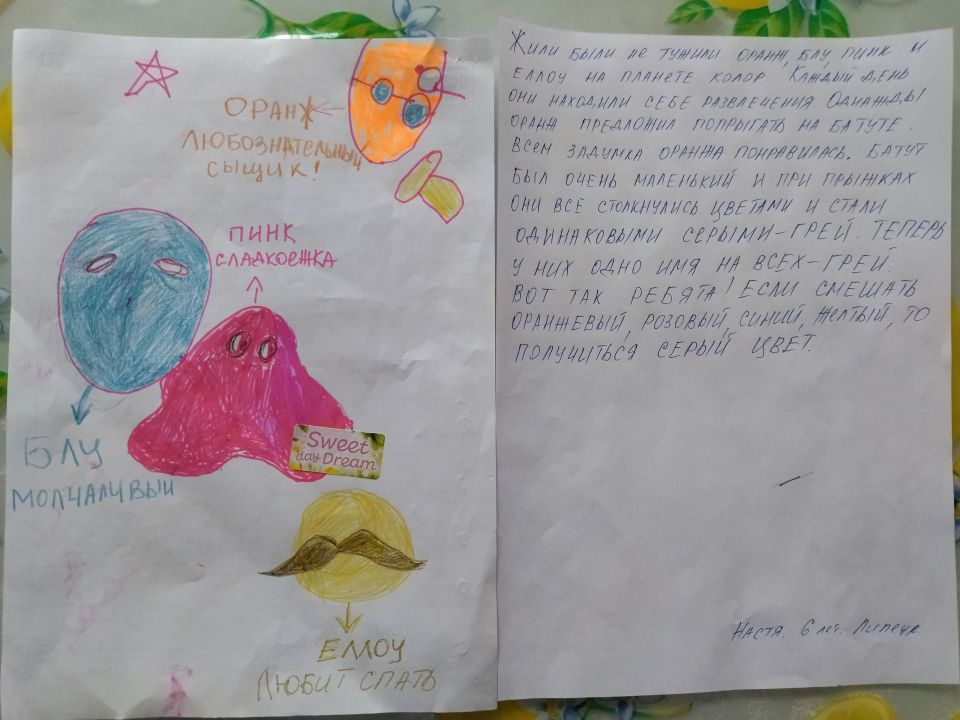 ОРАНЖ
ЛЮБОЗНАТЕЛЬНЫЙ
СЫЩИК!
ПИНК
СЛАДКОЕЖКА
БЛУ
МОЛЧАЛИВЫЙ
Sweet
day Dream
ЕЛЛОУ
ЛЮБИТ СПАТЬ
Жили были не тужили оранж, блу, пинк и
еллоу на планете колор. Каждый день
они находили себе развлечения. Однажды
оранж предложил попрыгать на батуте.
Всем задумка оранжа понравилась. Батут
был очень маленький и при прыжках
они все столкнулись цветами и стали
одинаковыми серыми-грей. Теперь
у них одно имя на всех-грей.
Вот так ребята! Если смешать
оранжевый, розовый, синий, желтый, то
получиться серый цвет.
Настя. 6 лет. Липецк